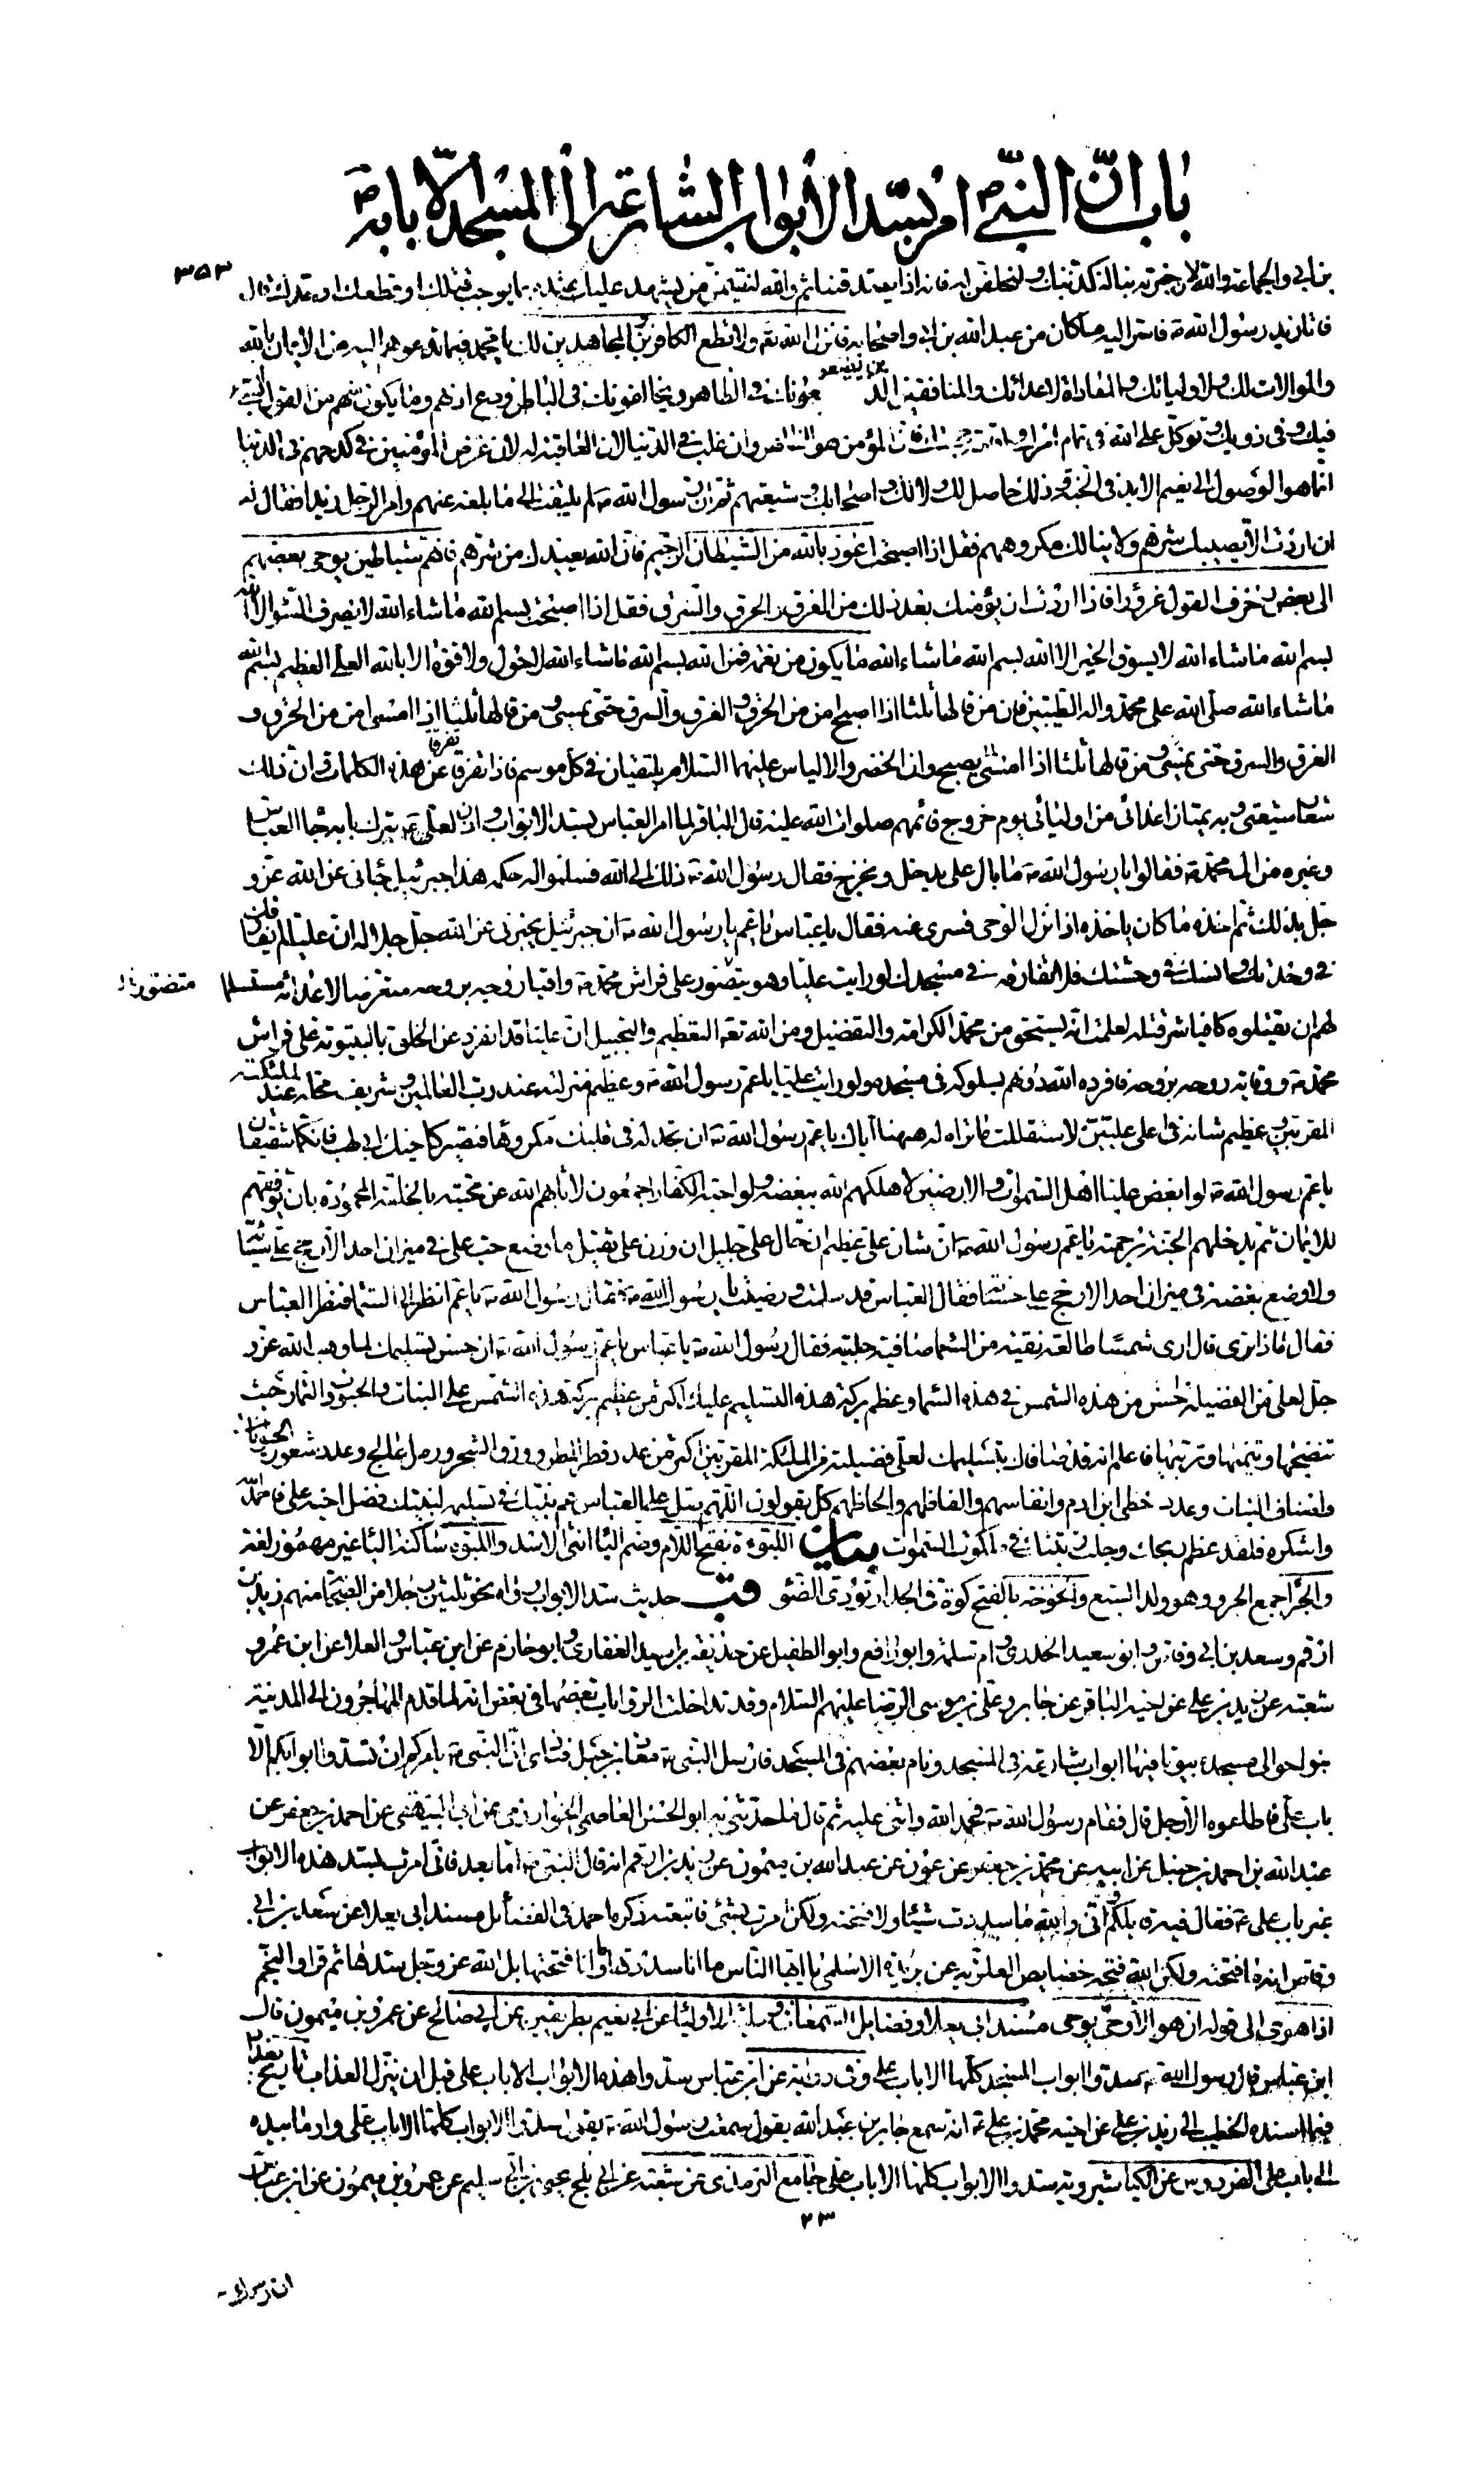 باب انّ النبيّ ص امر بسدّ الأبواب الشارعة الى المسجد الّا بابه
٣٥٣
بن ابي والجماعة والله لان اخبرته بنا لنكذبنك ولنحلفن له فانه اذا يصدقنا ثم والله لنقيمن من يشهد عليك عنده بما يوجب قتلك او قطعك او حدك قال
فاتى زيد رسول الله ص فاسر اليه ما كان من عبد الله بن ابي واصحابه فانزل الله تع ولا تطع الكافرين المجاهدين لك يا محمد فيما تدعوهم اليه من الايمان بالله
والموالات لك ولاوليائك والمعاداة لاعدائك والمنافقين الذين يطيعونك في الظاهر ويخالفونك في الباطن ودع اذاهم وما يكون منهم من القول السيئ
فيك وفي ذويك وتوكل على الله في تمام امرك واقامة حجتك فان المؤمن هو الظاهر وان غلب في الدنيا لان العاقبة له لان غرض المؤمنين في كدحهم في الدنيا
انما هو الوصول الى نعيم الابد في الجنة وذلك حاصل لك ولالك واصحابك وشيعتهم ثم ان رسول الله ص لم يلتفت الى ما بلغه عنهم وامر الرجل زيدا فقال له
ان اردت الا يصيبك شرهم ولا ينالك مكروههم فقل اذا اصبحت اعوذ بالله من الشيطان الرجيم فان الله يعيذك من شرهم فانهم شياطين يوحي بعضهم
الى بعض زخرف القول غرورا فاذا اردت ان يؤمنك بعد ذلك من الغرق والحرق والسرق فقل اذا اصبحت بسم الله ما شاء الله لا يصرف السوء الا الله
بسم الله ما شاء الله لا يسوق الخير الا الله بسم الله ما شاء الله ما يكون من نعمة فمن الله بسم الله ما شاء الله لا حول ولا قوة الا بالله العلي العظيم بسم الله
ما شاء الله صلى الله على محمد واله الطيبين فان من قالها ثلثا اذا اصبح امن من الحرق والغرق والسرق حتى يمسي ومن قالها ثلثا اذا امسى امن من الحرق و
الغرق والسرق حتى يمسي ومن قالها ثلثا اذا امسى يصبح وان الخضر والالياس عليهما السلام يلتقيان في كل موسم فاذا تفرقا تفرقا عن هذه الكلمات وان ذلك
شعار شيعتي وبه يمتاز اعدائي من اوليائي يوم خروج قائمهم صلوات الله عليه قال الباقر لما امر العباس بسد الابواب واذن لعلي ع بترك بابه جاء العباس
وغيره من ال محمد ص فقالوا يا رسول الله ص ما بال علي يدخل ويخرج فقال رسول الله ص ذلك الى الله فسلموا له حكمه هذا جبرئيل جائني عن الله عز و
جل بذلك ثم اخذه ما كان ياخذه اذا نزل الوحي فسرى عنه فقال يا عباس يا عم رسول الله ص ان جبرئيل يخبرني عن الله جل جلاله ان عليا لم يفارقك
في وحدتك وانسك في وحشتك فلا تفارقه في مسجدك لو رايت عليا وهو يتضور على فراش محمد ص واقيا روحه بروحه متعرضا لاعدائه مستسلما
متضورا ل
لهم ان يقتلوه كافيا شر قتله لعلمت انه يستحق من محمد الكرامة والتفضيل ومن الله تعه التعظيم والتبجيل ان عليا قد انفرد عن الخلق بالبيتوتة على فراش
محمد ص ووقاية روحه بروحه فافرده الله دونهم بسلوكه في مسجده ولو رايت عليا يا عم رسول الله ص وعظيم منزلته عند رب العالمين وشريف محله عند الملئكة
المقربين وعظيم شانه في اعلى عليين لاستقللت ما تراه له ههنا اياك يا عم رسول الله ص ان تجد له في قلبك مكروها فتصير كاخيك ابي لهب فانكما شقيقان
يا عم رسول الله ص لو ابغض عليا اهل السموات والارضين لاهلكهم الله ببغضه ولو احبه الكفار اجمعون لاثابهم الله عن محبته بالخاتمة المحمودة بان يوفقهم
للايمان ثم يدخلهم الجنة برحمته يا عم رسول الله ص ان شان علي عظيم ان حال علي جليل ان وزن علي ثقيل ما وضع حب علي في ميزان احد الا رجح على سيئاته
ولا وضع بغضه في ميزان احد الا رجح على حسناته فقال العباس قد سلمت ورضيت يا رسول الله ص فقال رسول الله ص يا عم انظر الى السماء فنظر العباس
فقال ماذا ترى قال ارى شمسا طالعة نقية من السماء صافية جلية فقال رسول الله ص يا عباس يا عم رسول الله ص ان حسن تسليمك لما وهب الله عز و
جل لعلي من الفضيلة احسن من هذه الشمس في هذه السماء وعظم بركة هذه التسليم عليك اكثر من عظيم بركة هذه الشمس على النبات والحبوب والثمار حيث
تنضجها وتنميها وتربيها فاعلم انه قد صافاك بتسليمك لعلي فضيلته من الملئكة المقربين اكثر من عدد قطر المطر وورق الشجر ورمل عالج وعدد شعور الحيوانات
واصناف النبات وعدد خطى ابن ادم وانفاسهم والفاظهم والحاظهم كل يقولون اللهم صل على العباس عم نبيك في تسليمه لنبيك فضل اخيه علي فاحمد الله
واشكره فلقد عظم ربحك وجلت رتبتك في ملكوت السموات بيان اللبوءة بفتح اللام وضم الباء انثى الاسد واللبوة ساكنة الباء غير مهموز لغة
والجراء جمع الجرو وهو ولد السبع والخوخة بالفتح كوة في الجدار تؤدي الضوء قب حديث سد الابواب رواه نحو ثلثين رجلا من الصحابة منهم زيد بن
ارقم وسعد بن ابي وقاص وابو سعيد الخدري وام سلمة وابو رافع وابو الطفيل عن حذيفة بن اسيد الغفاري وابو حازم عن ابن عباس والعلاء عن ابن عمر و
شعبة عن زيد بن علي عن اخيه الباقر عن جابر وعلي بن موسى الرضا عليهم السلام وقد تداخلت الروايات بعضها في بعض انه لما قدم المهاجرون الى المدينة
بنوا حوالى مسجده بيوتا فيها ابواب شارعة في المسجد ونام بعضهم في المسجد فارسل النبي ص معاذ بن جبل فنادى ان النبي ص يامركم ان تسدوا ابوابكم الا
باب علي فاطاعوه الا رجل قال فقام رسول الله ص فحمد الله واثنى عليه ثم قال فلحدثني به ابو الحسن العاصمي الخوارزمي عن ابي البيهقي عن احمد بن جعفر عن
عبد الله بن احمد بن حنبل عن ابيه عن محمد بن جعفر عن عون عن عبد الله بن ميمون عن زيد بن ارقم انه قال النبي ص اما بعد فاني امرت بسد هذه الابواب
غير باب علي ع فقال فيه قائلكم واني والله ما سددت شيئا ولا فتحته ولكن امرت بشئ فاتبعته ذكره احمد في الفضائل مسند ابي يعلى عن سعد بن ابي
وقاص انه ما فتحته ولكن الله فتحه خصايص العلوية عن بريدة الاسلمي يا ايها الناس ما انا سددتها وما انا فتحتها بل الله عز وجل سدها ثم قرا والنجم
اذا هوى الى قوله ان هو الا وحي يوحى مسند ابي يعلى وفضايل السمعاني وحلية الاولياء عن ابي نعيم بطريقين عن ابي صالح عن عمرو بن ميمون قال
ابن عباس قال رسول الله ص سدوا ابواب المسجد كلها الا باب علي وفي رواية عن ابن عباس سدوا هذه الابواب الا باب علي قبل ان ينزل العذاب تاريخ بغداد
فيما اسنده الخطيب الى زيد بن علي عن اخيه محمد بن علي ع انه سمع جابر بن عبد الله يقول سمعت رسول الله ص يقول سدوا الابواب كلها الا باب علي واومأ بيده
الى باب علي الفردوس عن الكيا شيرويه سدوا الابواب كلها الا باب علي جامع الترمذي عن شعبة عن ابي بلج يحيى بن ابي سليم عن عمرو بن ميمون عن ابن عباس
٢٣
ان رسول